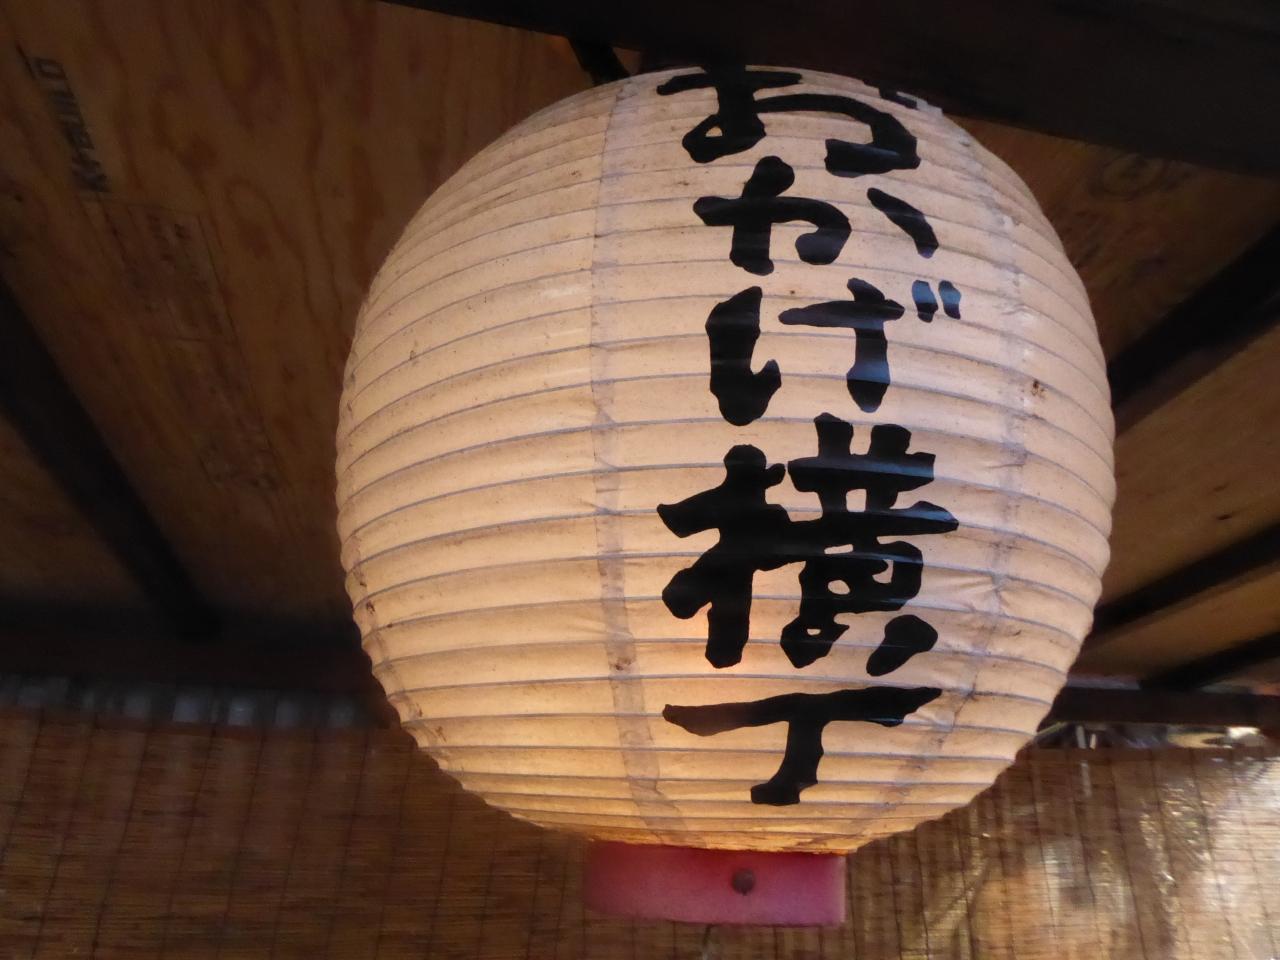 おかげ横丁